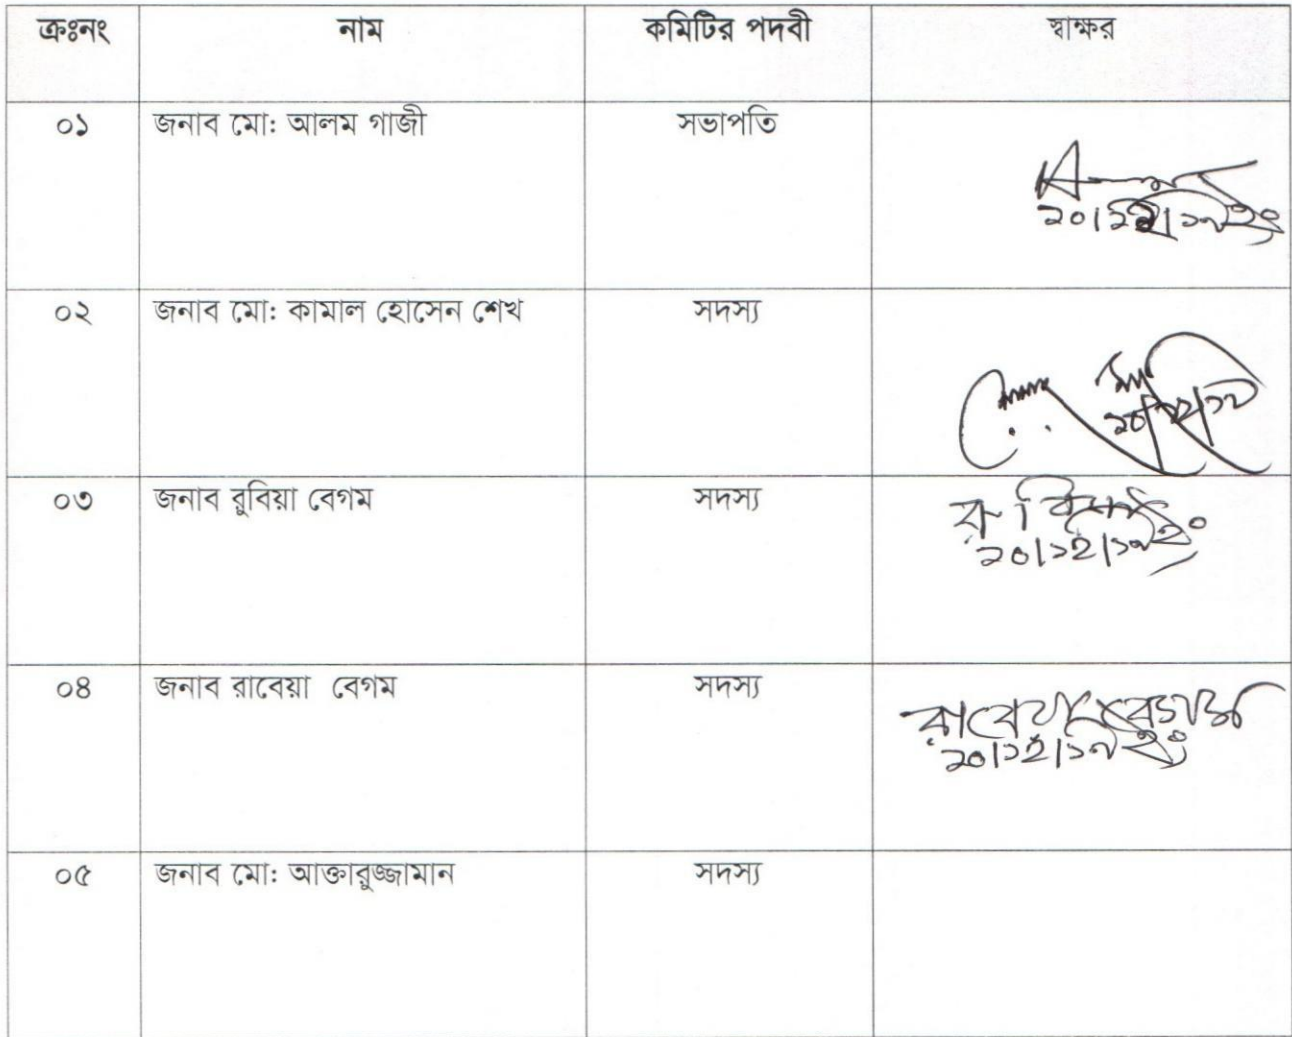 ক্রঃনং নাম কমিটির পদবী স্বাক্ষর
০১ জনাব মো: আলম গাজী সভাপতি
০২ জনাব মো: কামাল হোসেন শেখ সদস্য
০৩ জনাব রুবিয়া বেগম সদস্য
২০।১২।১৭ইং
০৪ জনাব রাবেয়া বেগম সদস্য
রাবেয়া বেগম
২০।১২।১৭ইং
০৫ জনাব মো: আক্তারুজ্জামান সদস্য